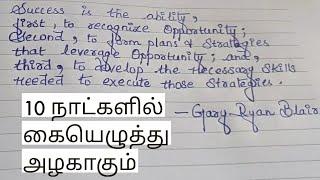 Success is the ability,
first, to recognize Opportunity;
Second, to form plans & Strategies
that leverage Opportunity; and,
third, to develop the Necessary Skills
Needed to execute those Strategies.
10 நாட்களில்
கையெழுத்து
அழகாகும்
- Gary Ryan Blair